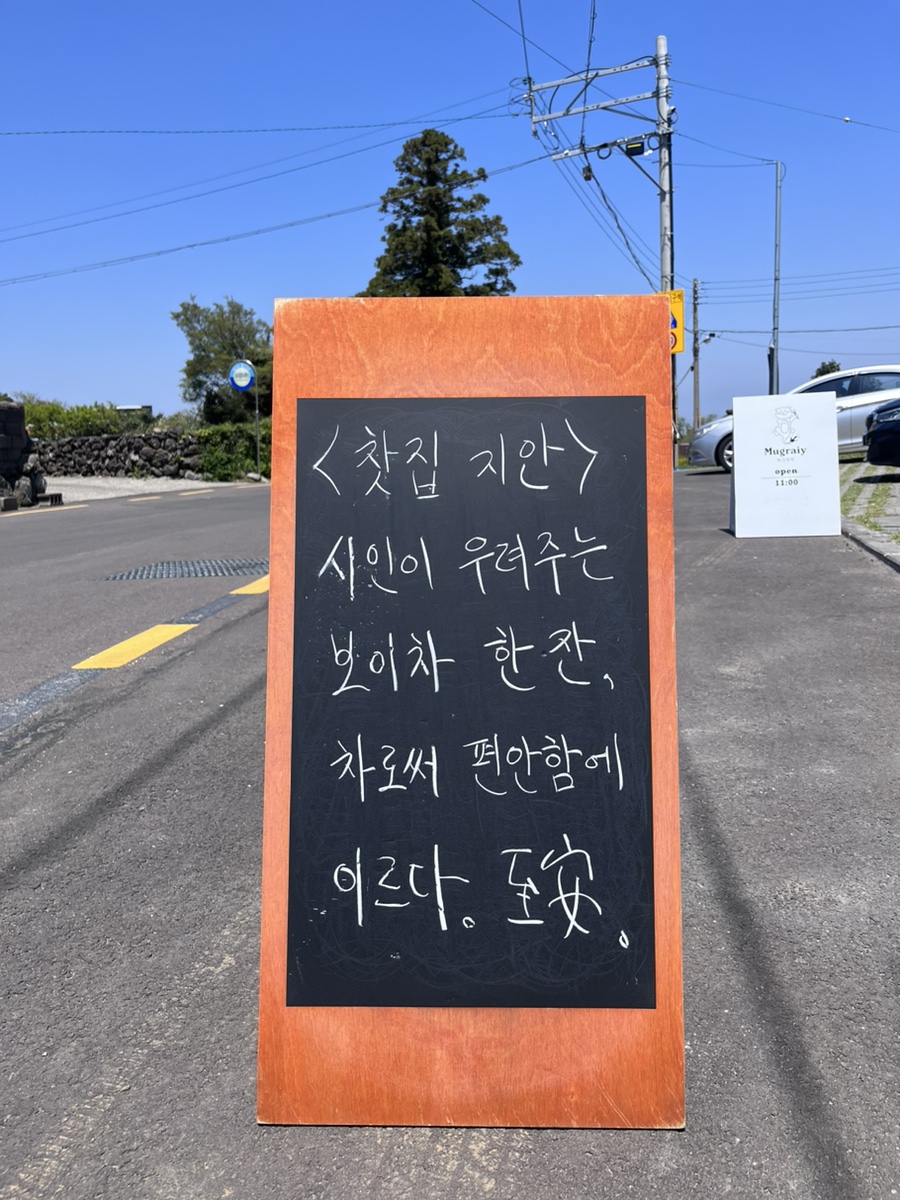 <찻집 지안>
시인이 우려주는
보이차 한 잔,
차로써 편안함에
이르다。至安。
Mugraiy
open
11:00